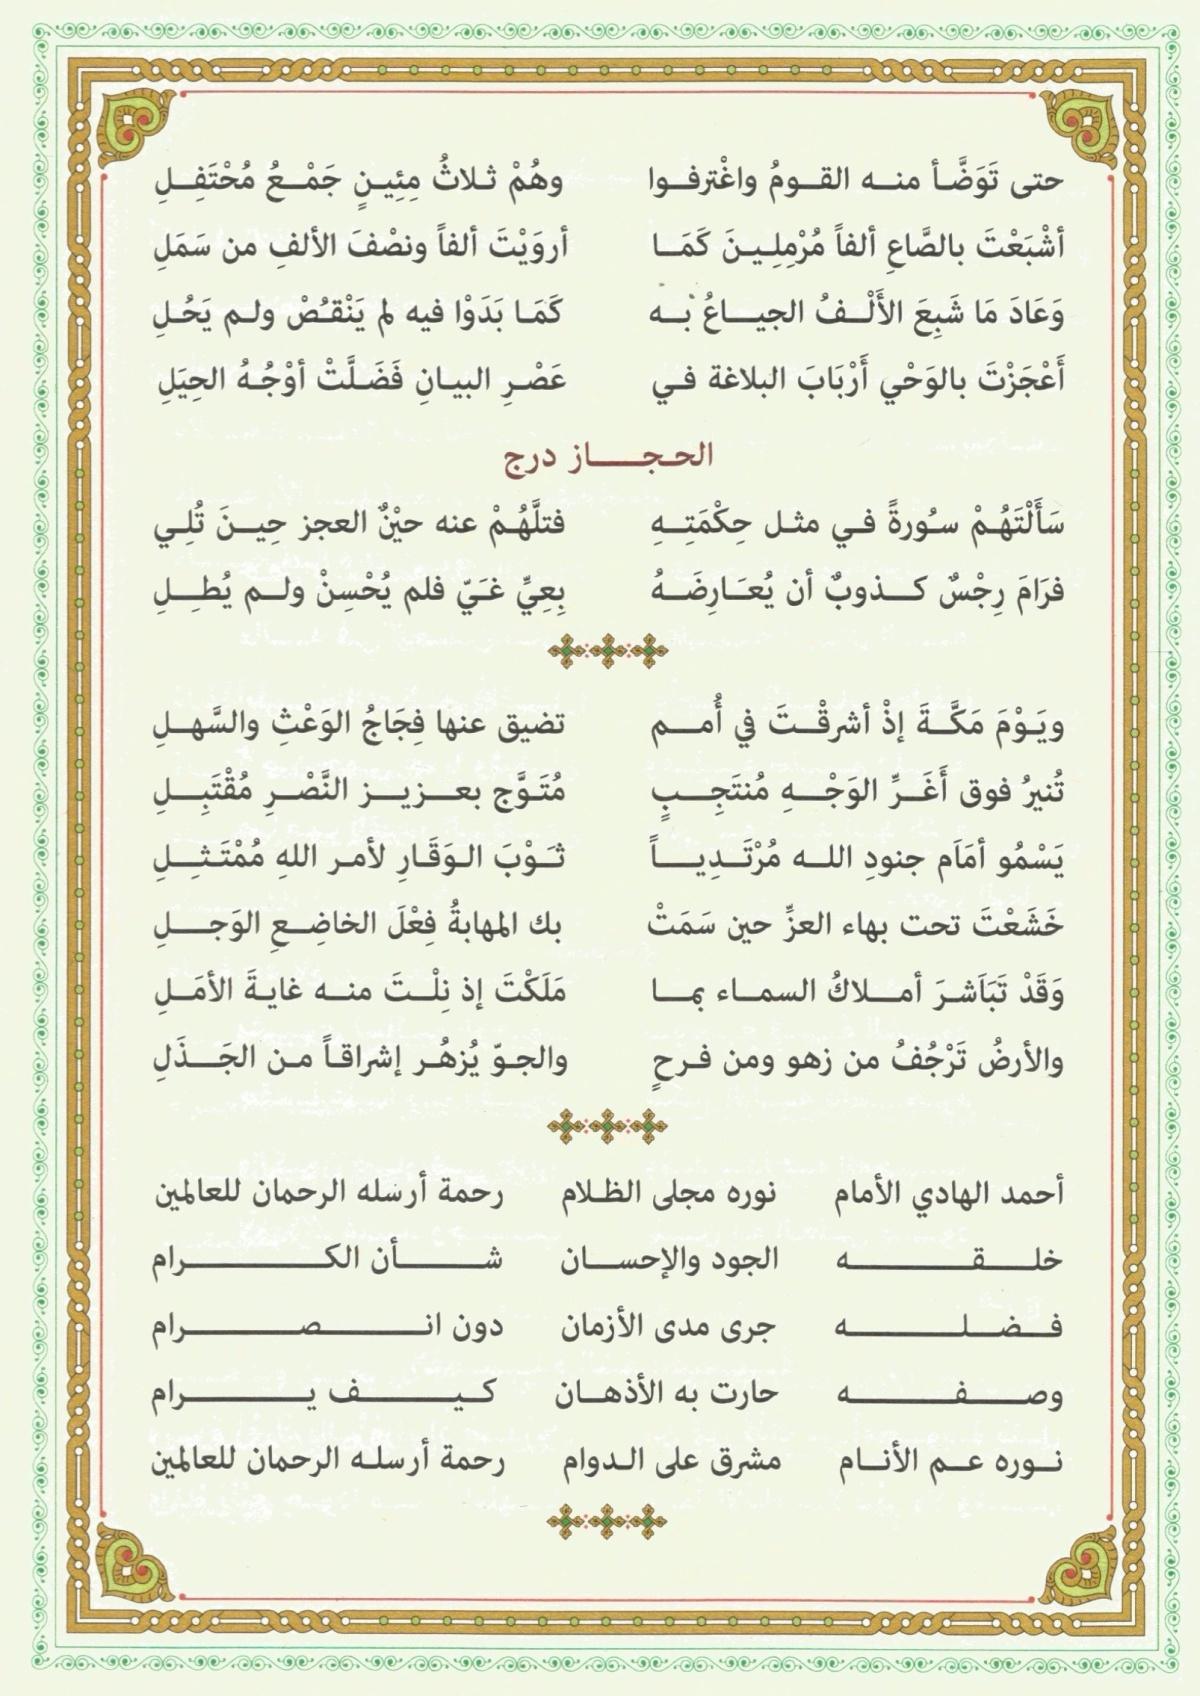 حتى تَوَضَّأ منه القومُ واغْترفوا وهُمْ ثلاثُ مِئِينٍ جَمْعُ مُحْتَفِلِ
أشْبَعْتَ بالصَّاعِ ألفاً مُرْمِلِينَ كَمَا أروَيْتَ ألفاً ونصْفَ الألفِ من سَمَلِ
وَعَادَ مَا شَبِعَ الأَلْفُ الجياعُ به كَمَا بَدَوْا فيه لم يَنْقصُْ ولم يَحُلِ
أَعْجَزْتَ بالوَحْي أَرْبَابَ البلاغة في عَصْرِ البيانِ فَضَلَّتْ أوْجُهُ الحِيَلِ
الحجاز درج
سَأَلْتَهُمْ سُورةً في مثل حِكْمَتِهِ فتلَّهُمْ عنه حيْنٌ العجز حِينَ تُلِي
فرَامَ رِجْسٌ كذوبٌ أن يُعَارِضَهُ بِعِيٍّ غَيّ فلم يُحْسِنْ ولم يُطِلِ
ويَوْمَ مَكَّةَ إذْ أشرقْتَ في أُمم تضيق عنها فِجَاجُ الوَعْثِ والسَّهلِ
تُنيرُ فوق أَغَرِّ الوَجْهِ مُنتَجِبٍ مُتَوَّج بعزيز النَّصْرِ مُقْتَبِلِ
يَسْمُو أمَاَم جنودِ الله مُرْتَدِياً ثوْبَ الوَقَارِ لأمر اللهِ مُمْتَثِلِ
خَشَعْتَ تحت بهاء العزِّ حين سَمَتْ بك المهابةُ فِعْلَ الخاضِعِ الوَجلِ
وَقَدْ تَبَاَشرَ أملاكُ السماء بما مَلَكْتَ إذ نِلْتَ منه غايةَ الأمَلِ
والأرضُ تَرْجُفُ من زهو ومن فرحٍ والجوّ يُزهُر إشراقاً من الجَذَلِ
أحمد الهادي الأمام نوره مجلى الظلام رحمة أرسله الرحمان للعالمين
خلقه الجود والإحسان شأن الكرام
فضله جرى مدى الأزمان دون انصرام
وصفه حارت به الأذهان كيف يرام
نوره عم الأنام مشرق على الدوام رحمة أرسله الرحمان للعالمين